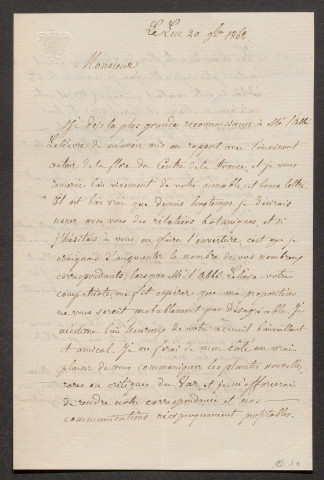 Le Luc 20 9bre 1862
Monsieur
J'ai la plus grande reconnaissance à Mr l'abbé
de m'avoir mis en rapport avec l'éminent
auteur de la flore du Centre de la France, et je vous
remercie bien vivement de votre aimable et bonne lettre.
Il est bien vrai que depuis longtemps je désirais
nouer avec vous des relations botaniques, et si
j'hésitais à vous en faire l'ouverture, c'est que je
craignais d'augmenter le nombre de vos nombreux
correspondants, lorsque Mr l'Abbé votre
compatriote, me fit espérer que ma proposition
ne vous serait probablement pas désagréable. Je
m'estime bien heureux de votre accueil bienveillant
et amical. Je me ferai de mon côté un vrai
plaisir de vous communiquer les plantes nouvelles,
rares ou critiques du Var, et je m'efforcerai
de rendre notre correspondance et nos
communications réciproquement profitables.